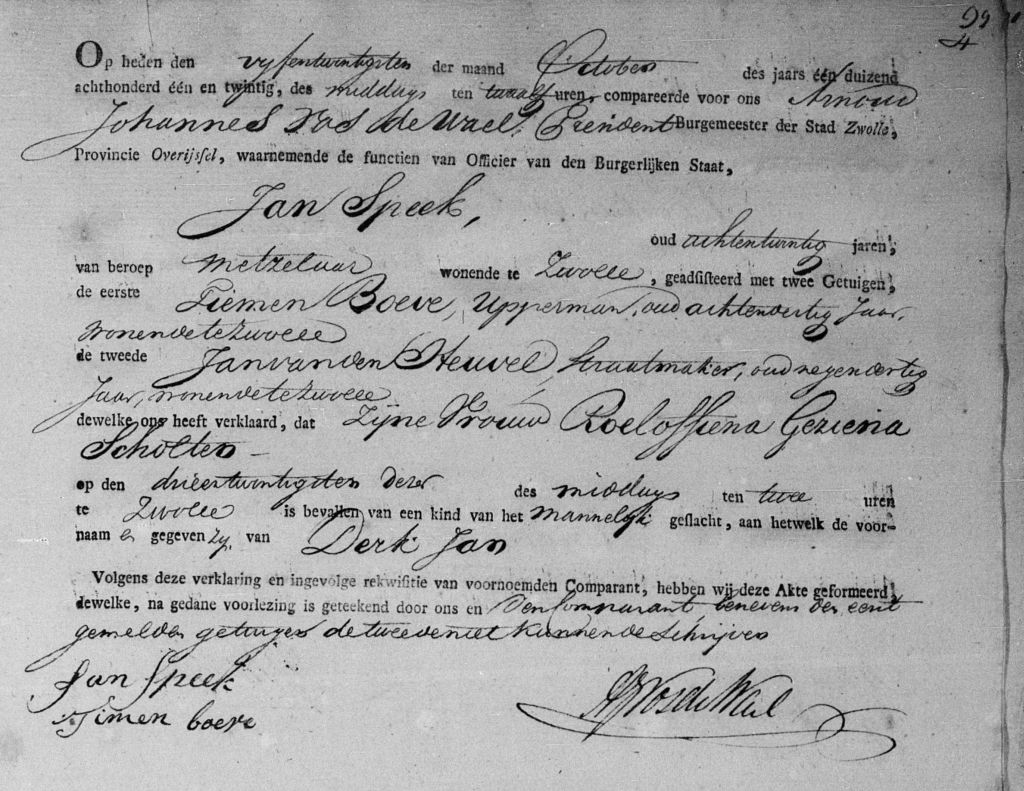 99
4
Op heden den vyfentwintigsten der maand October des jaars één duizend
achthonderd één en twintig, des middags ten twaalf uren, compareerde voor ons Arnoud
Johannes Vos de Wael, President Burgemeester der Stad Zwolle,
Provincie Overijssel, waarnemende de functien van Officier van den Burgerlijken Staat,
Jan Speek,
oud achtentwintig jaren,
van beroep Metzelaar wonende te Zwolle, geadsisteerd met twee Getuigen,
de eerste Tiemen Boeve, Upperman, oud achtendertig Jaar,
wonende te Zwolle
de tweede Jan van den Heuvel, Straatmaker, oud negendertig
Jaar, wonende te Zwolle
dewelke ons heeft verklaard, dat Zyne Vrouw Roeloffiena Geziena
Scholten
op den drieentwintigsten dezer des middags ten twee uren
te Zwolle is bevallen van een kind van het Mannelyk geslacht, aan hetwelk de voor-
naam en gegeven zy, van Derk Jan
Volgens deze verklaring en ingevolge rekwisitie van voornoemden Comparant, hebben wij deze Akte geformeerd,
dewelke, na gedane voorlezing is geteekend door ons en den Comparant, benevens den eerst
gemelden getuigen de tweede niet kunnende Schrijven
Jan Speek
Timen boeve
AJVosdeWael